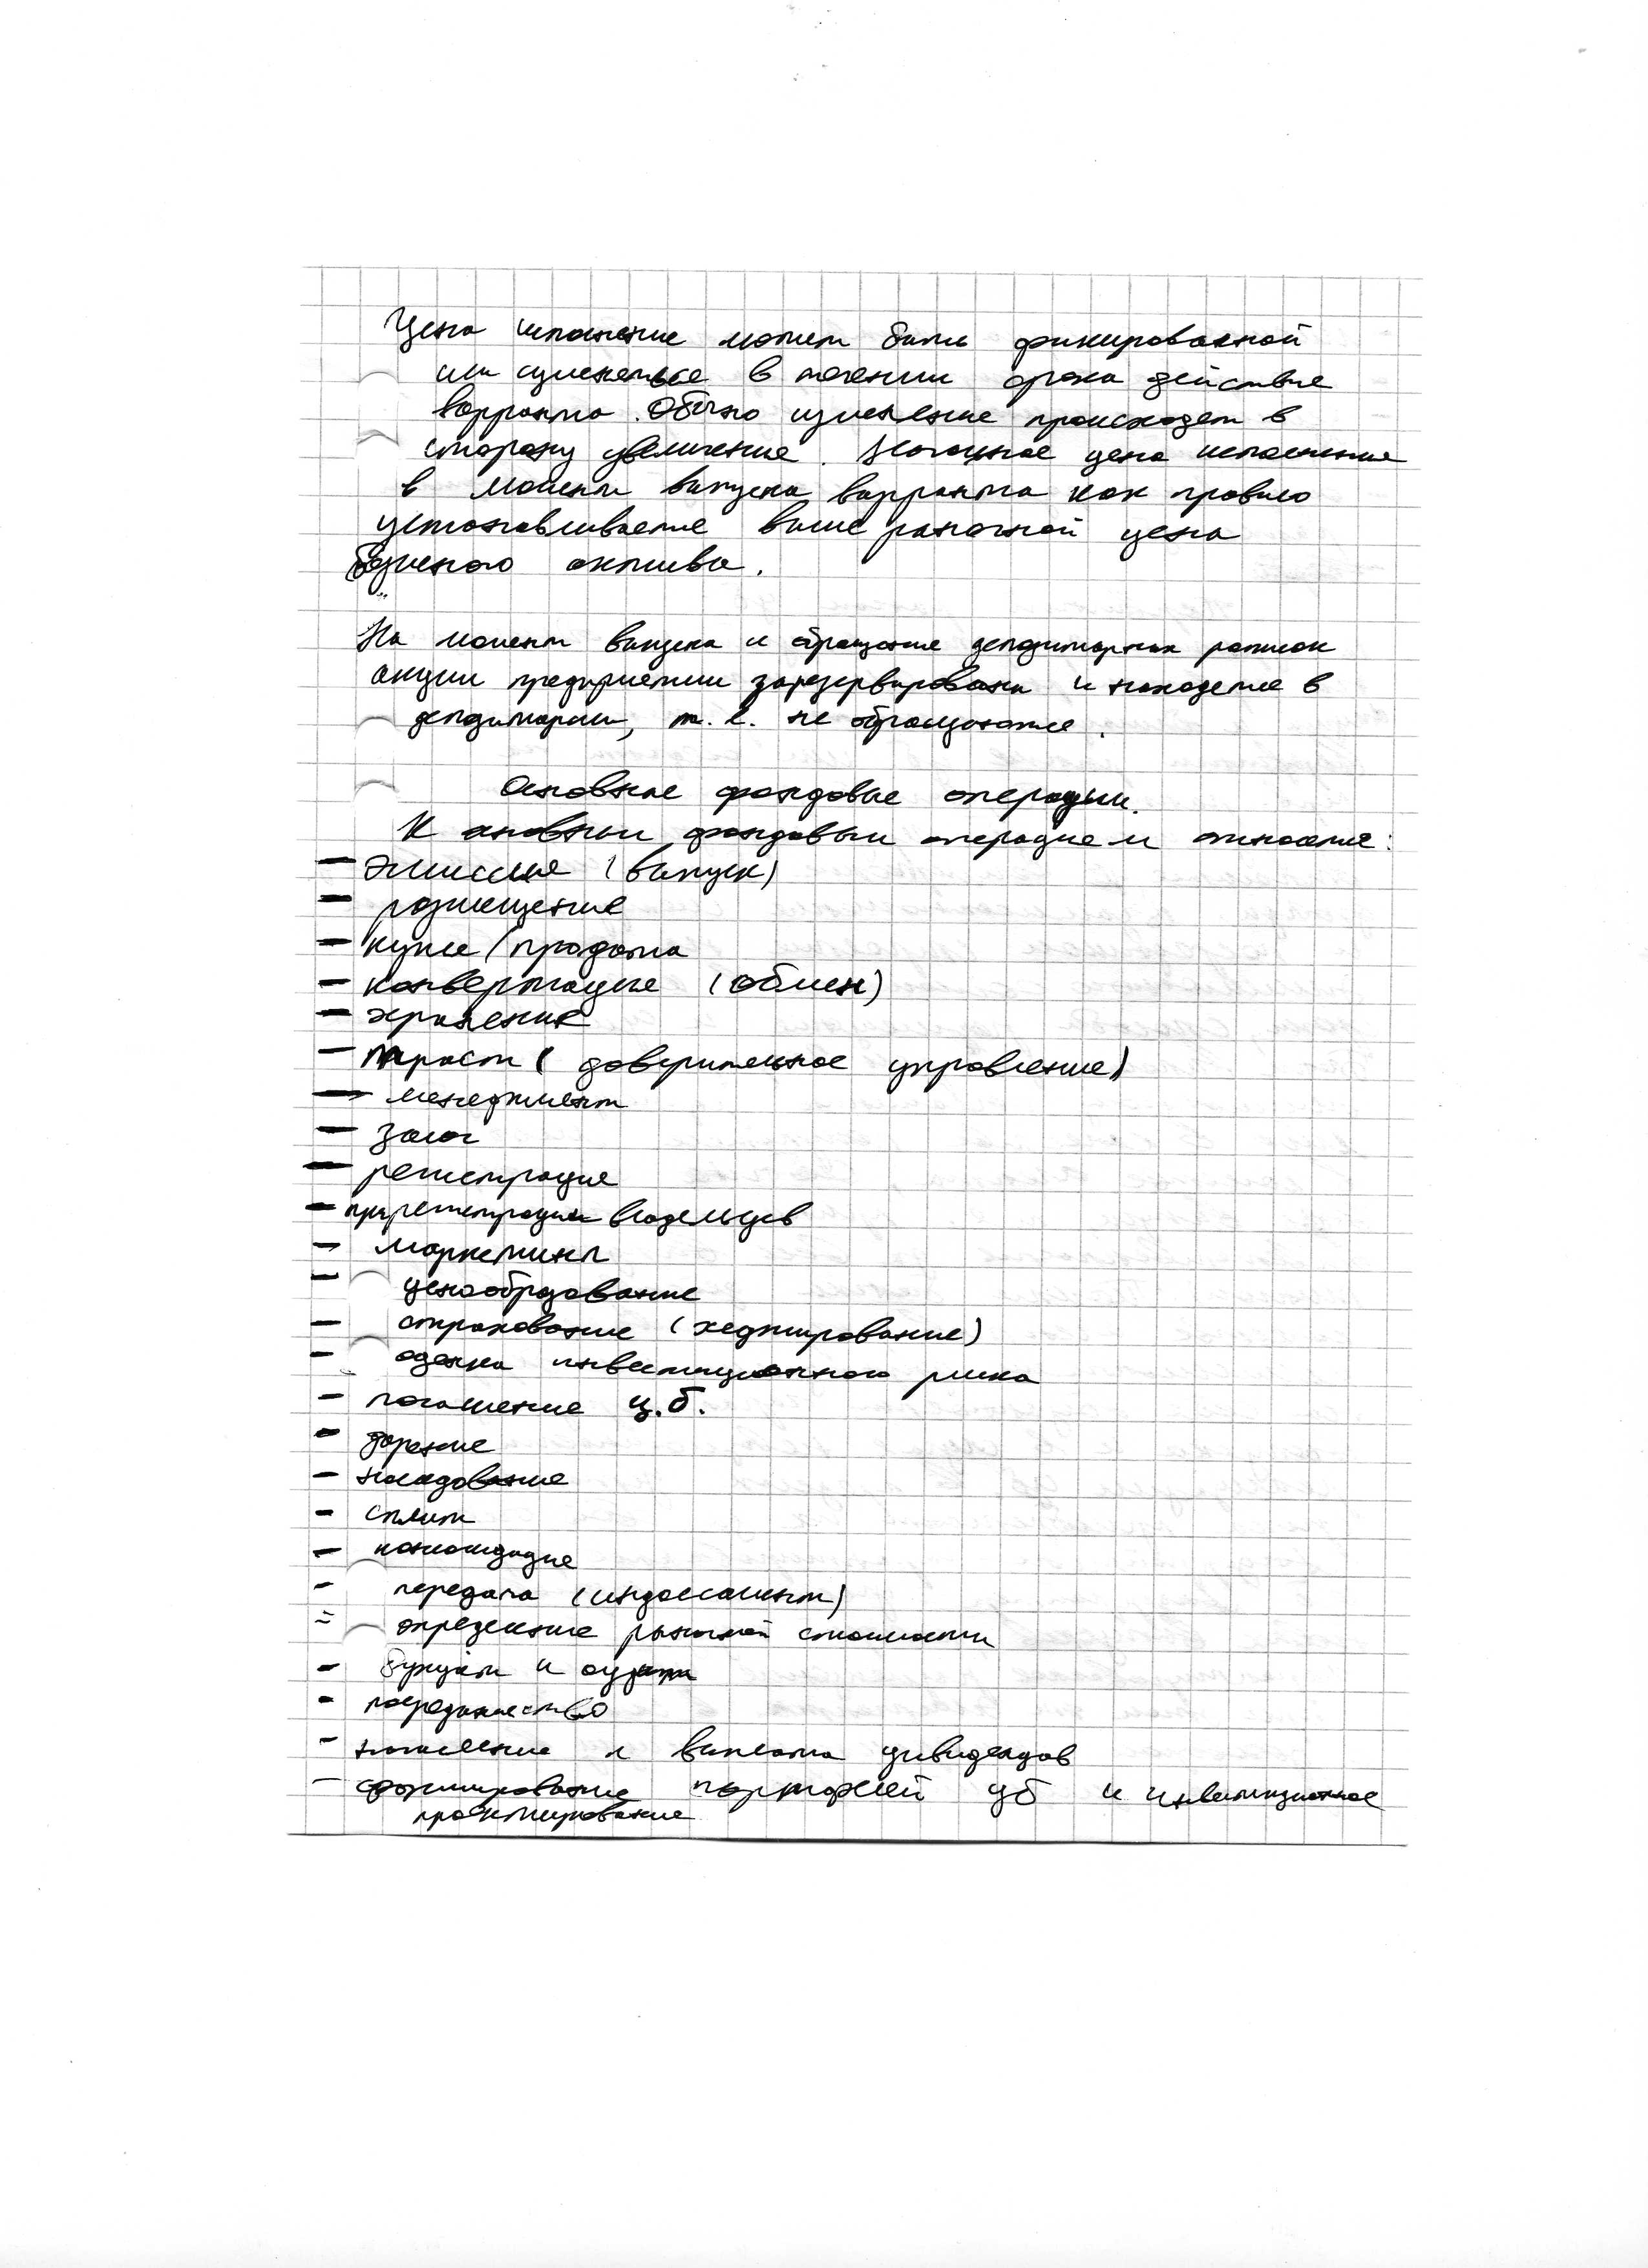 Цена исполнение может быть фиксированной
или изменяться в течении срока действие
варранта. Обычно изменение происходят в
сторону увеличение. Начальное цена исполнение
в момент выпуска варранта как правило
устонавливается выше рыночной цена
базисного актива.
На момент выпуска и обращение депозитарных расписок
акции предприятии зарезервированы и находятся в
депозитарии, т.е. не обращаются.
Основные фондовые операции.
К основным фондовым операциям относятся:
- Эмиссия (выпуск)
- размещение
- купля/продажа
- конвертация (обмен)
- хранения
- траст (доверительное управление)
- менеджмент
- залог
- регистрация
- перерегистрации владельцев
- маркетинг
- ценообразование
- страхование (хеджирование)
- оценка инвестиционного риска
- погашение ц.б.
- дарение
- наследование
- сплит
- консолидация
- передача (индоссамент)
- определение рыночной стоимости
- и аудит
- посредничество
- начисление и выплата дивидендов
- формирование портфелей цб и инвестиционное
проектирование